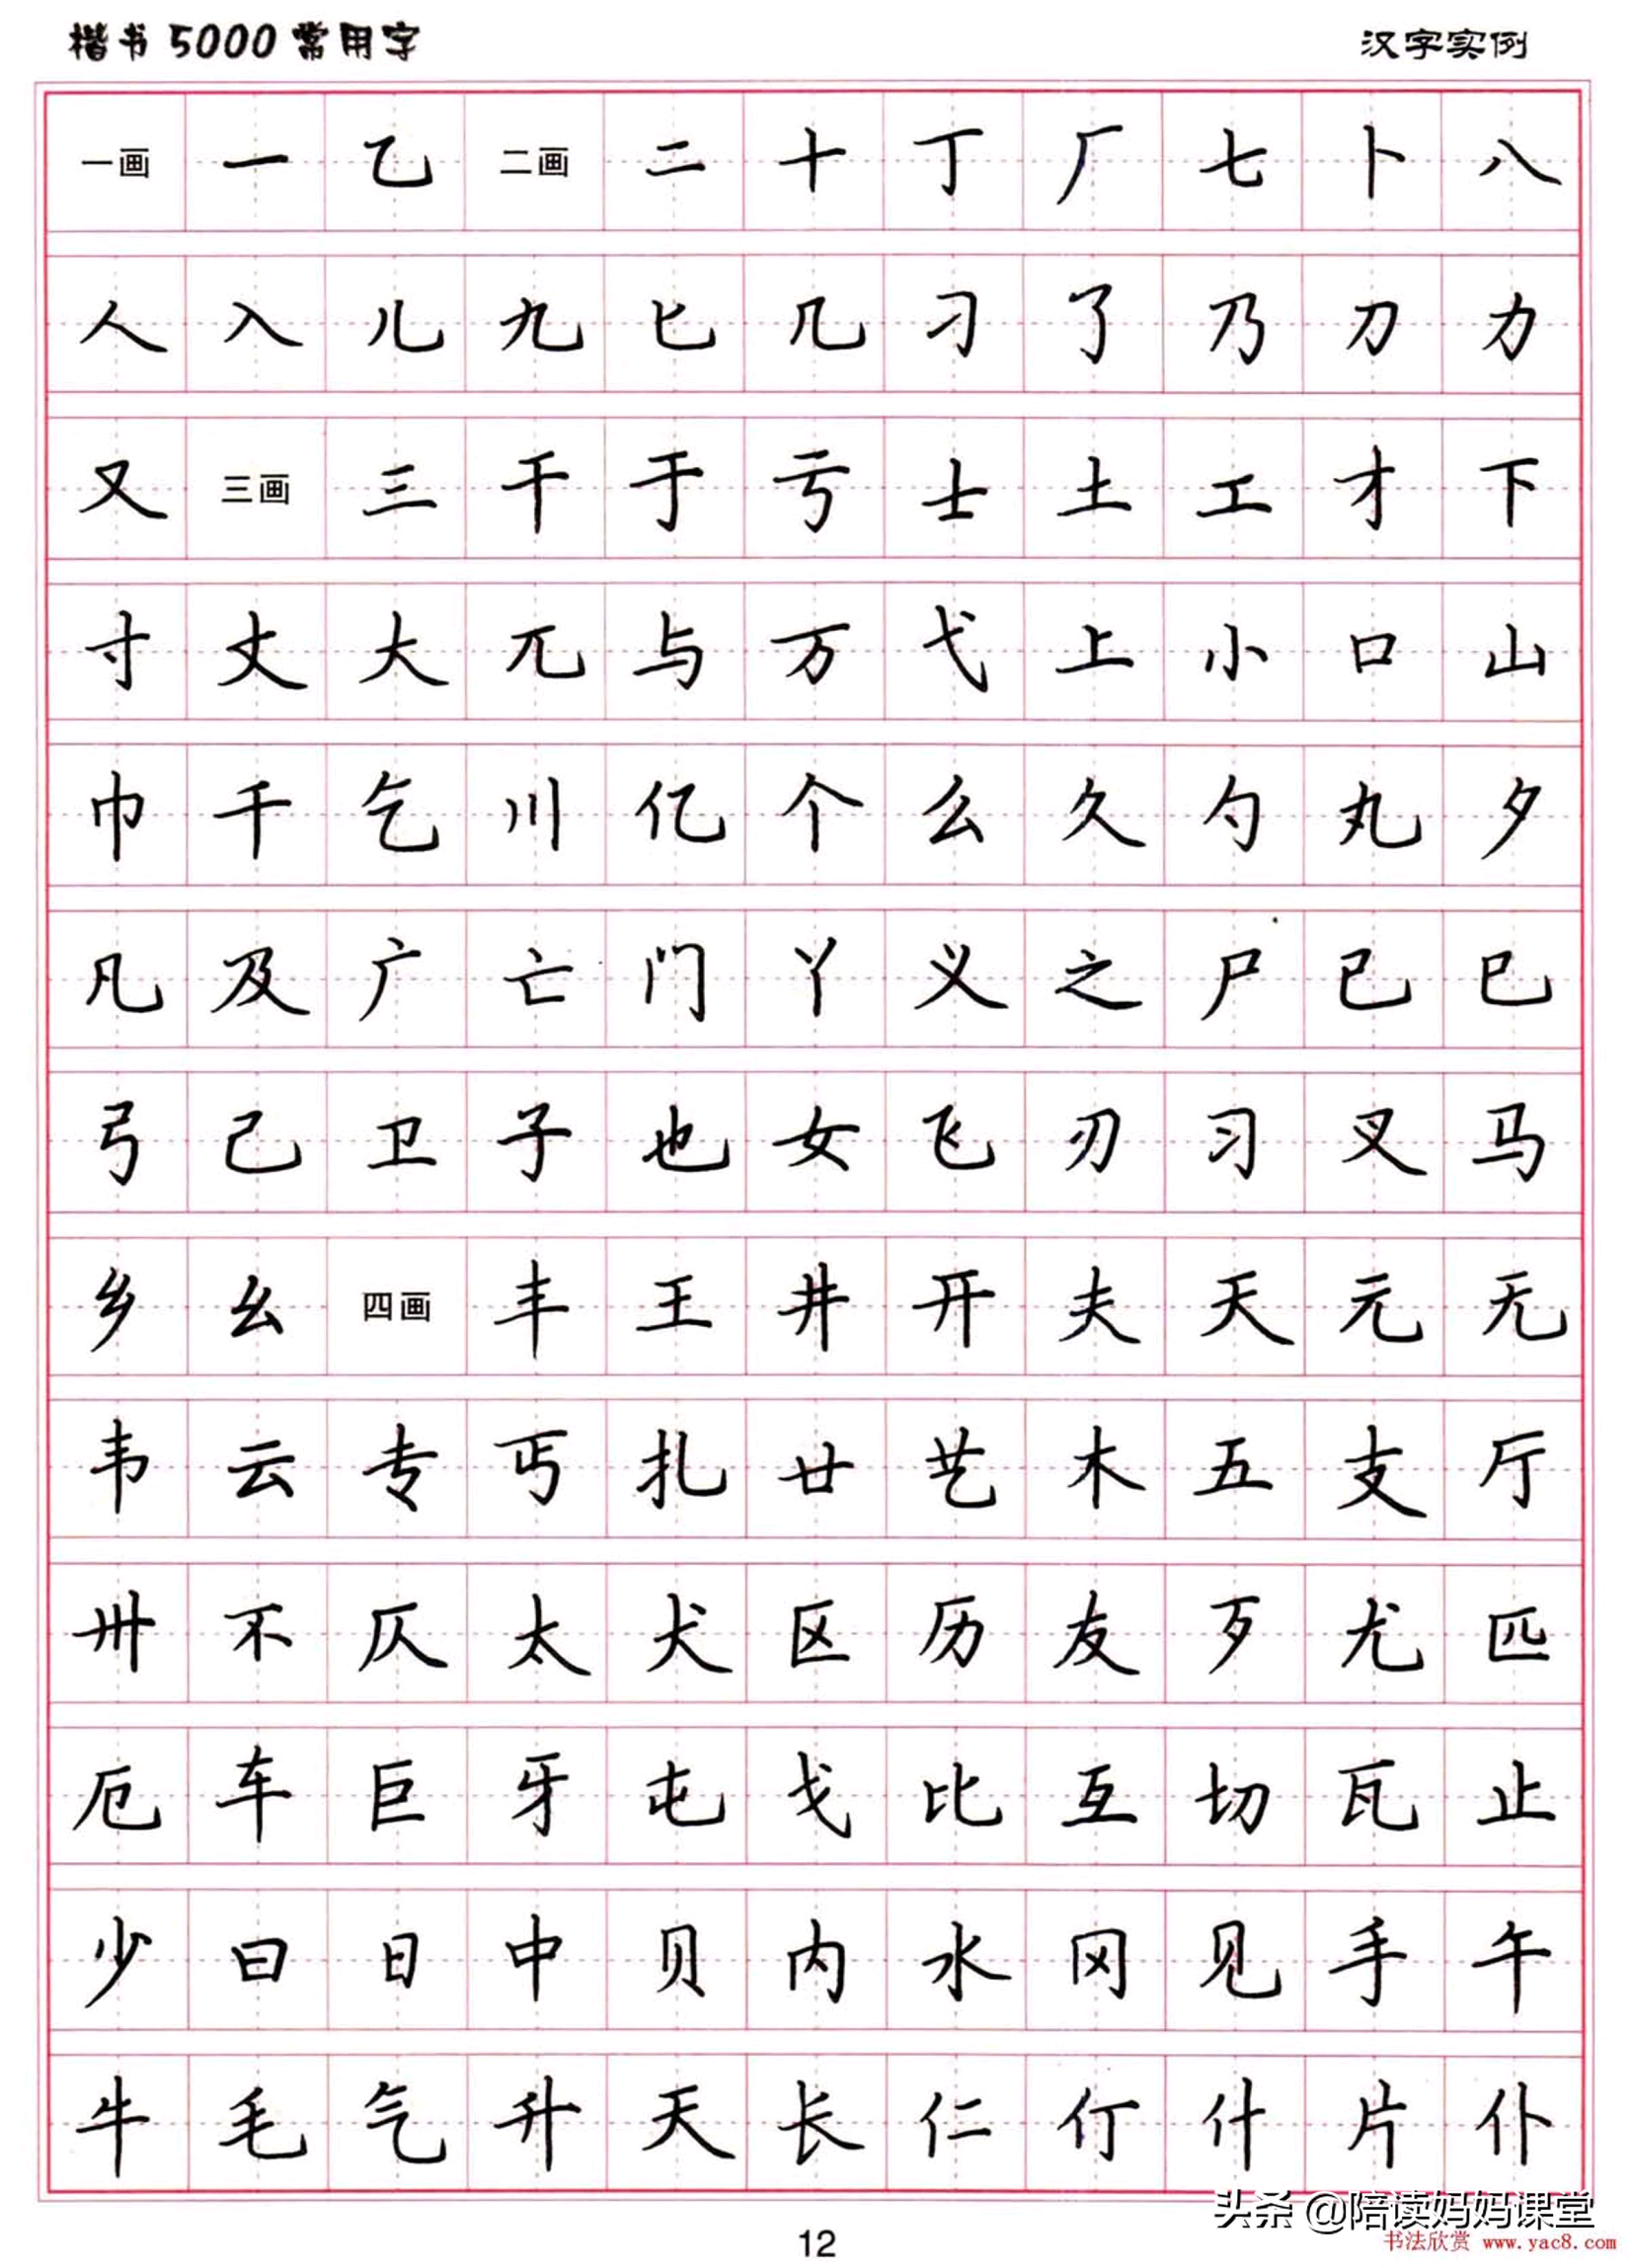 楷书5000常用字 汉字实例
一画 一 乙 二画 二 十 丁 厂 七 卜 八
人 入 儿 九 匕 几 刁 了 乃 刀 力
又 三画 三 干 于 亏 士 土 工 才 下
寸 丈 大 兀 与 万 弋 上 小 口 山
巾 千 乞 川 亿 个 么 久 勺 丸 夕
凡 及 广 亡 门 丫 义 之 尸 已 巳
弓 己 卫 子 也 女 飞 刃 习 叉 马
乡 幺 四画 丰 王 井 开 夫 天 元 无
韦 云 专 丐 扎 廿 艺 木 五 支 厅
卅 不 仄 太 犬 区 历 友 歹 尤 匹
厄 车 巨 牙 屯 戈 比 互 切 瓦 止
少 曰 日 中 贝 内 水 冈 见 手 午
牛 毛 气 升 夭 长 仁 仃 什 片 仆
头条 @陪读妈妈课堂
12
书法欣赏 www.yac8.com